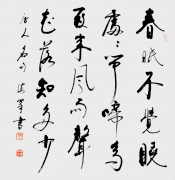 春眠不覺曉
處處聞啼鳥
夜来風雨聲
花落知多少
唐人名句